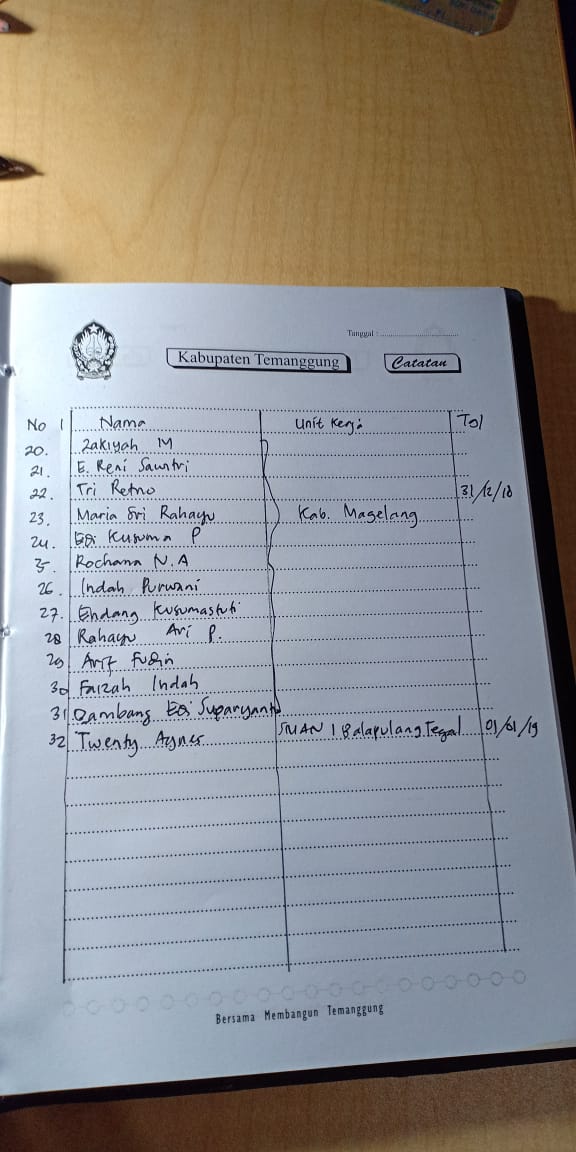 Tanggal :
Kabupaten Temanggung
Catatan
No Nama Unit Kerja Tgl
20. Zakiyah M
21. E. Reni Sawitri
22. Tri Retno 31/12/18
23. Maria Sri Rahayu Kab. Magelang
24. Kusuma P
25. Rochana N.A
26. Indah Purwani
27. Endang Kusumastuti
28 Rahayu Ari P.
29 Arif
30 Faizah Indah
31 Bambang Suparyanto
32 Twenty Agnes SMAN 1 Balapulang Tegal 01/01/19
Bersama Membangun Temanggung